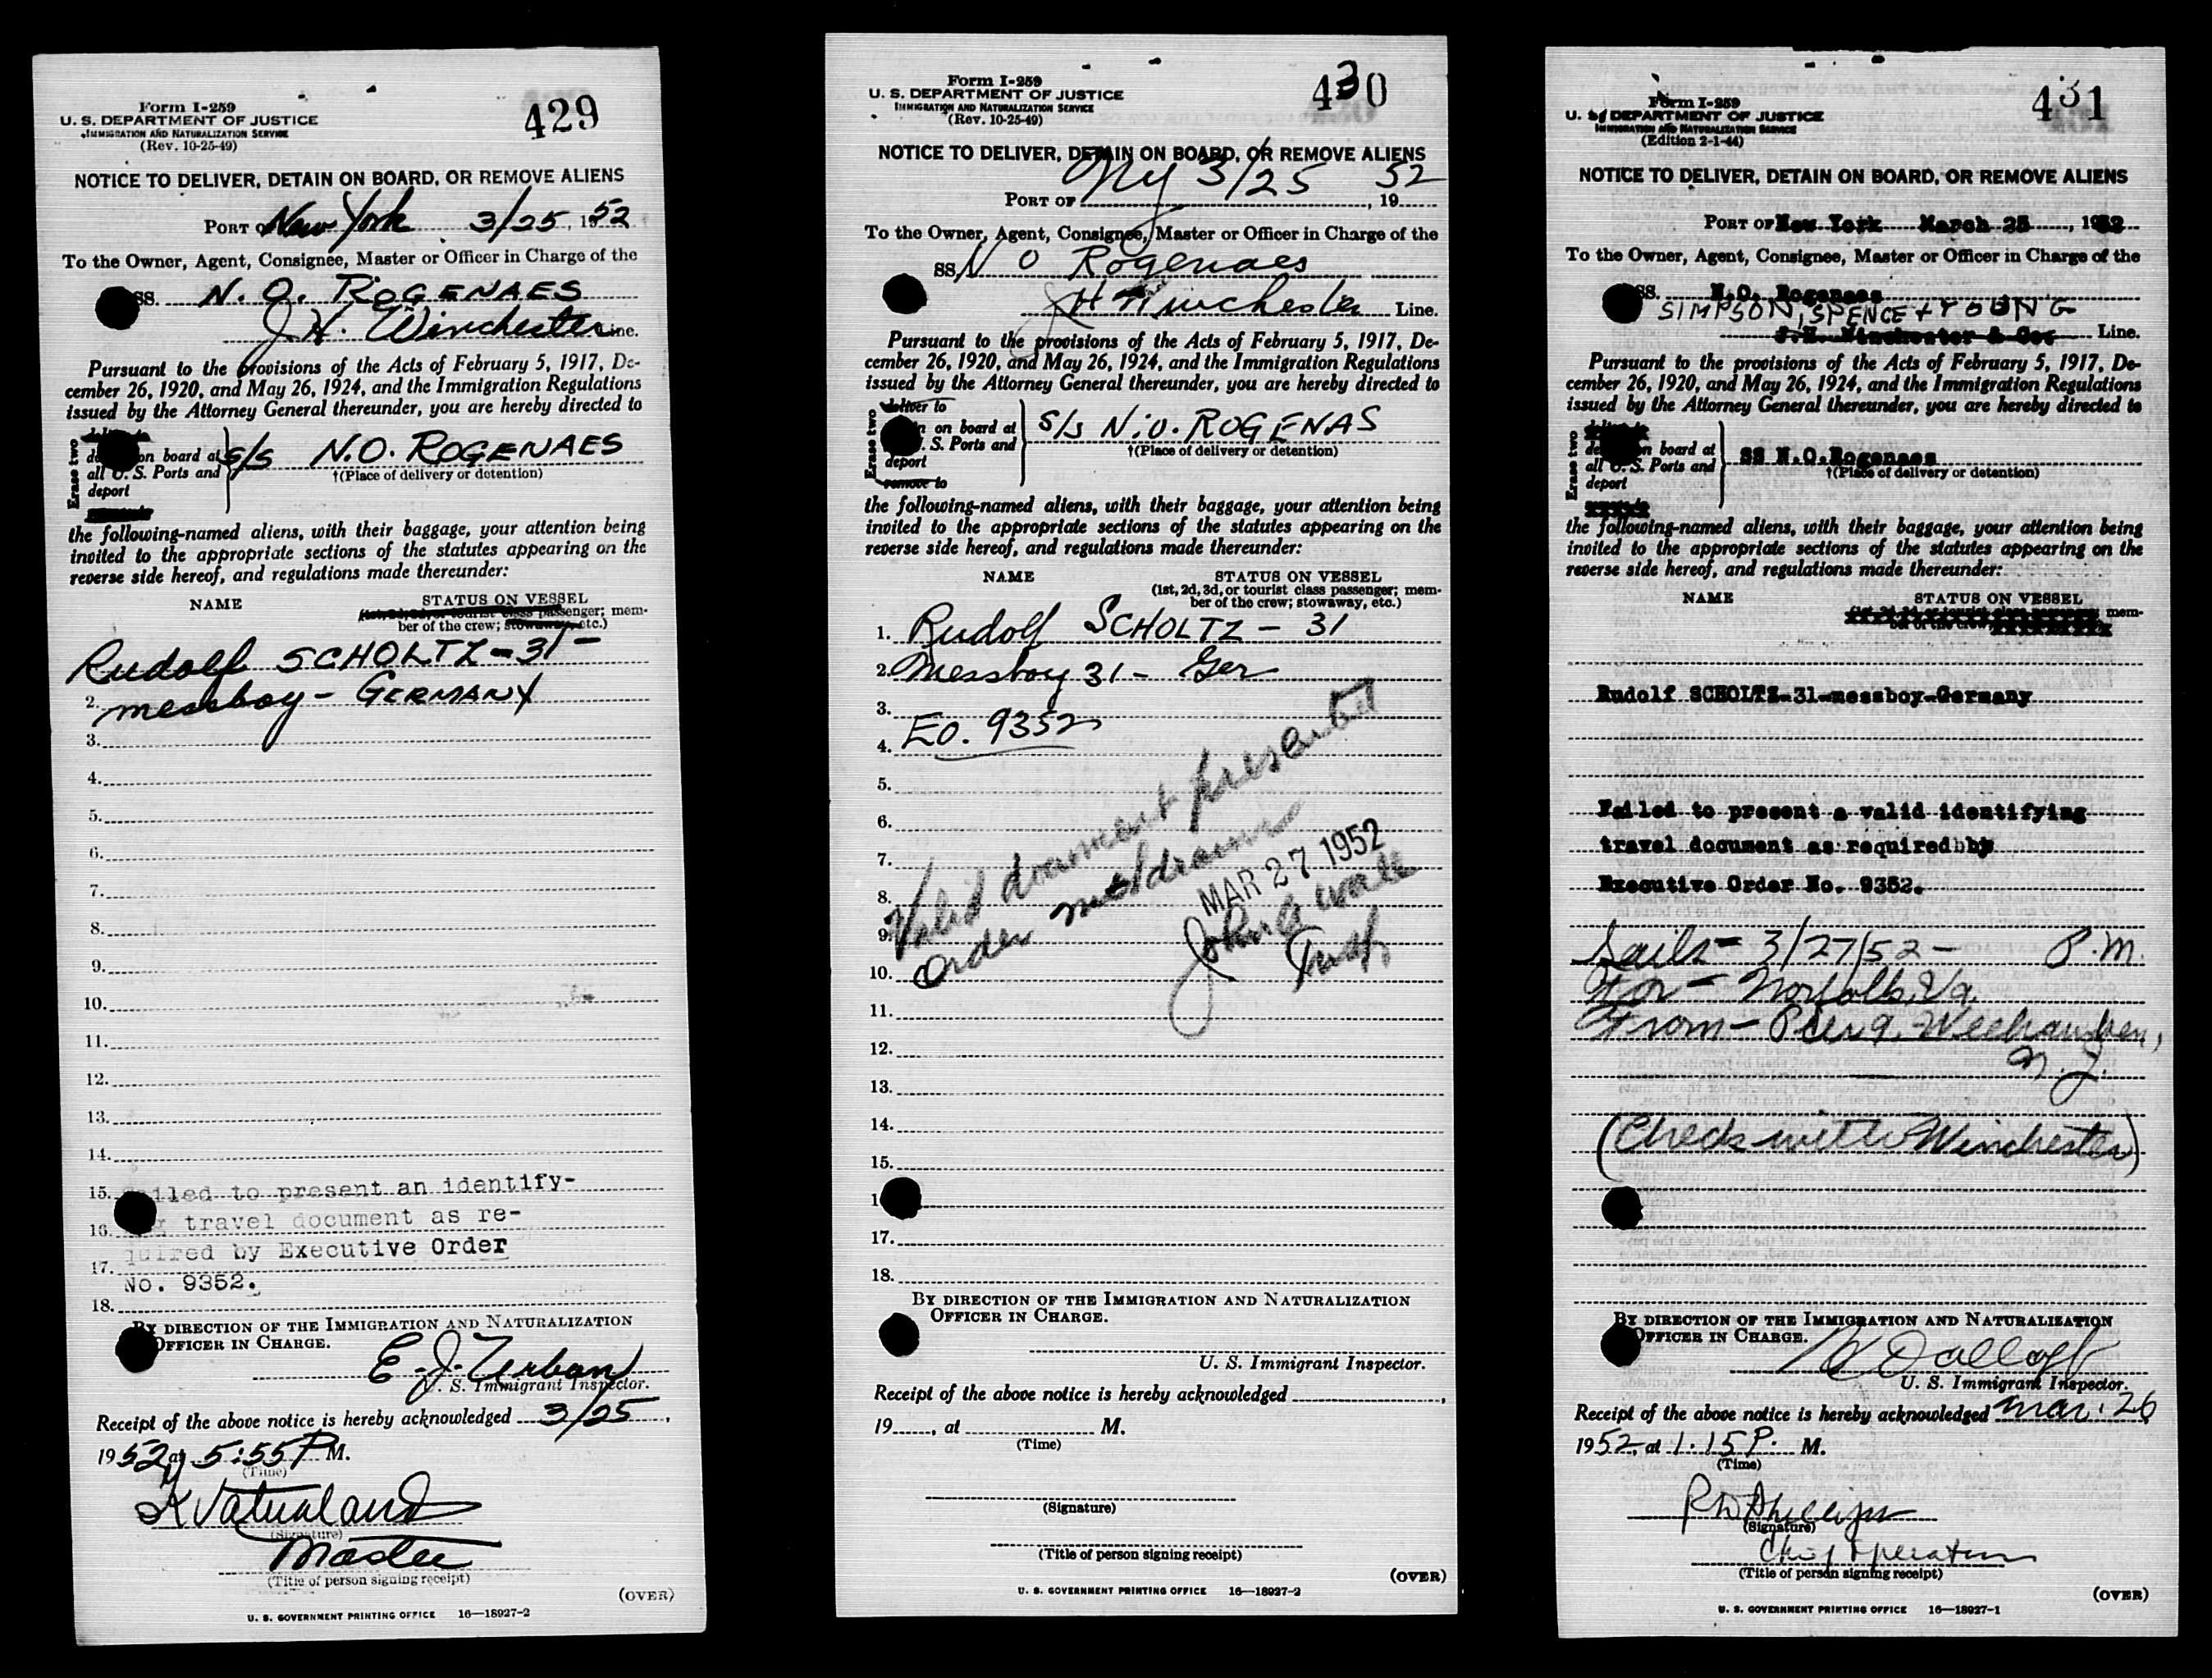 Form I-259
U. S. DEPARTMENT OF JUSTICE
IMMIGRATION AND NATURALIZATION SERVICE
(Rev. 10-25-49)
429
NOTICE TO DELIVER, DETAIN ON BOARD, OR REMOVE ALIENS
PORT OF New York 3/25, 1952
To the Owner, Agent, Consignee, Master or Officer in Charge of the
SS. N. O. ROGENAES
J. H. Winchester Line.
Pursuant to the provisions of the Acts of February 5, 1917, De-
cember 26, 1920, and May 26, 1924, and the Immigration Regulations
issued by the Attorney General thereunder, you are hereby directed to
Erase two
on board at
all U. S. Ports and
deport
S/S N.O. ROGENAES
†(Place of delivery or detention)
the following-named aliens, with their baggage, your attention being
invited to the appropriate sections of the statutes appearing on the
reverse side hereof, and regulations made thereunder:
NAME STATUS ON VESSEL
passenger; mem-
ber of the crew; etc.)
Rudolf SCHOLTZ-31-
2. messboy - GERMANY
3.
4.
5.
6.
7.
8.
9.
10.
11.
12.
13.
14.
15. Failed to present an identify-
16. travel document as re-
quired by Executive Order
17.
No. 9352.
18.
BY DIRECTION OF THE IMMIGRATION AND NATURALIZATION
OFFICER IN CHARGE.
E. J. Urban
U. S. Immigrant Inspector.
Receipt of the above notice is hereby acknowledged 3/25,
1952, at 5:55 P M.
(Time)
(Signature)
Master
(Title of person signing receipt)
(OVER)
U. S. GOVERNMENT PRINTING OFFICE 16—18927-2
Form I-259
U. S. DEPARTMENT OF JUSTICE
IMMIGRATION AND NATURALIZATION SERVICE
(Rev. 10-25-49)
430
NOTICE TO DELIVER, DETAIN ON BOARD, OR REMOVE ALIENS
PORT OF NY 3/25, 19 52
To the Owner, Agent, Consignee, Master or Officer in Charge of the
SS N O Rogenaes
J H Winchester Line.
Pursuant to the provisions of the Acts of February 5, 1917, De-
cember 26, 1920, and May 26, 1924, and the Immigration Regulations
issued by the Attorney General thereunder, you are hereby directed to
Erase two
deliver to
on board at
U. S. Ports and
deport
remove to
S/S N.O. ROGENAS
†(Place of delivery or detention)
the following-named aliens, with their baggage, your attention being
invited to the appropriate sections of the statutes appearing on the
reverse side hereof, and regulations made thereunder:
NAME STATUS ON VESSEL
(1st, 2d, 3d, or tourist class passenger; mem-
ber of the crew; stowaway, etc.)
1. Rudolf SCHOLTZ - 31
2. Messboy 31 - Ger
3.
4. EO. 9352
5.
6.
7.
8.
9.
10.
Valid document presented
order withdrawn
MAR 27 1952
11.
12.
13.
14.
15.
17.
18.
BY DIRECTION OF THE IMMIGRATION AND NATURALIZATION
OFFICER IN CHARGE.
U. S. Immigrant Inspector.
Receipt of the above notice is hereby acknowledged ,
19 , at M.
(Time)
(Signature)
(Title of person signing receipt)
(OVER)
U. S. GOVERNMENT PRINTING OFFICE 16—18927-2
Form I-259
U. S. DEPARTMENT OF JUSTICE
IMMIGRATION AND NATURALIZATION SERVICE
(Edition 2-1-44)
431
NOTICE TO DELIVER, DETAIN ON BOARD, OR REMOVE ALIENS
PORT OF New York March 25, 1952
To the Owner, Agent, Consignee, Master or Officer in Charge of the
SS. N.O. Rogenaes
SIMPSON, SPENCE + YOUNG
J.H. Winchester & Co. Line.
Pursuant to the provisions of the Acts of February 5, 1917, De-
cember 26, 1920, and May 26, 1924, and the Immigration Regulations
issued by the Attorney General thereunder, you are hereby directed to
Erase two
on board at
all U. S. Ports and
deport
SS N.O.Rogenaes
†(Place of delivery or detention)
the following-named aliens, with their baggage, your attention being
invited to the appropriate sections of the statutes appearing on the
reverse side hereof, and regulations made thereunder:
NAME STATUS ON VESSEL
mem-
ber of the crew
Rudolf SCHOLTZ-31-messboy-Germany
Failed to present a valid identifying
travel document as required by
Executive Order No. 9352.
Sails - 3/27/52 - P.M.
For - Norfolk, Va.
From - Pier 9, Weehawken,
N. J.
(Check with Winchester)
BY DIRECTION OF THE IMMIGRATION AND NATURALIZATION
OFFICER IN CHARGE.
U. S. Immigrant Inspector.
Receipt of the above notice is hereby acknowledged Mar. 26
1952, at 1.15 P. M.
(Time)
(Signature)
(Title of person signing receipt)
(OVER)
U. S. GOVERNMENT PRINTING OFFICE 16—18927-1